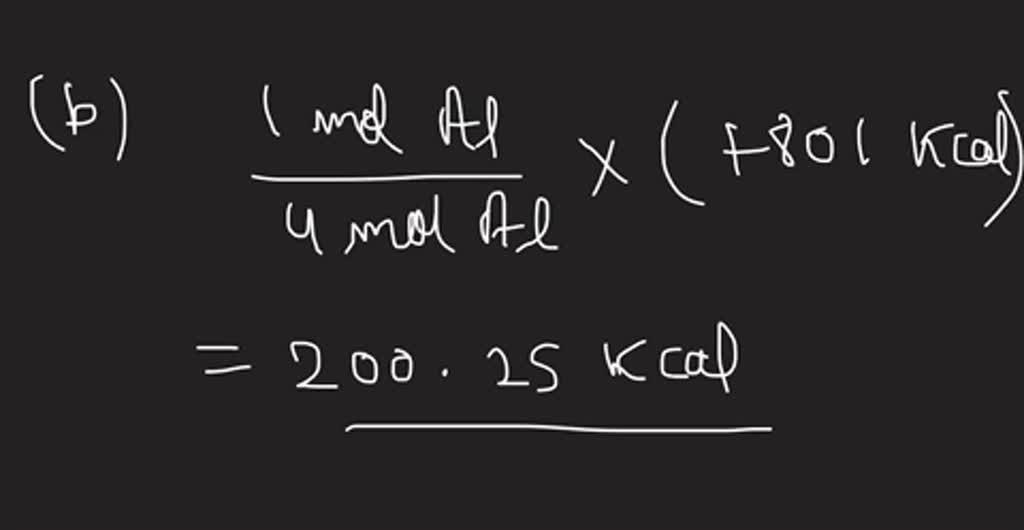 (b) 1 mol Al / 4 mol Al × (+801 Kcal)
= 200.25 Kcal